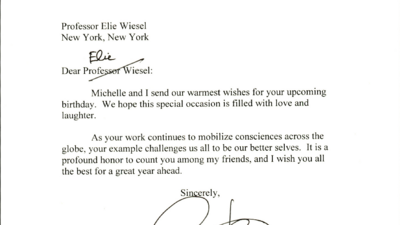 Professor Elie Wiesel
New York, New York
Elie
Dear Professor Wiesel:
Michelle and I send our warmest wishes for your upcoming
birthday. We hope this special occasion is filled with love and
laughter.
As your work continues to mobilize consciences across the
globe, your example challenges us all to be our better selves. It is a
profound honor to count you among my friends, and I wish you all
the best for a great year ahead.
Sincerely,